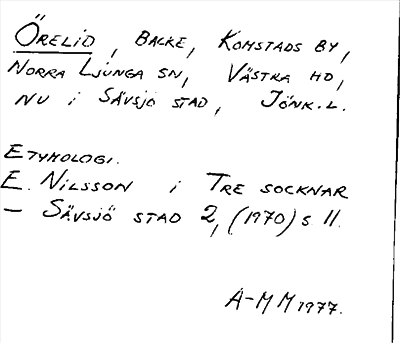 Örelid, Backe, Komstads by,
Norra Ljunga sn, Västra hd,
nu i Sävsjö stad, Jönk.l.
Etymologi.
E. Nilsson i Tre socknar
– Sävsjö stad 2, (1970) s 11.
A-M M 1977.